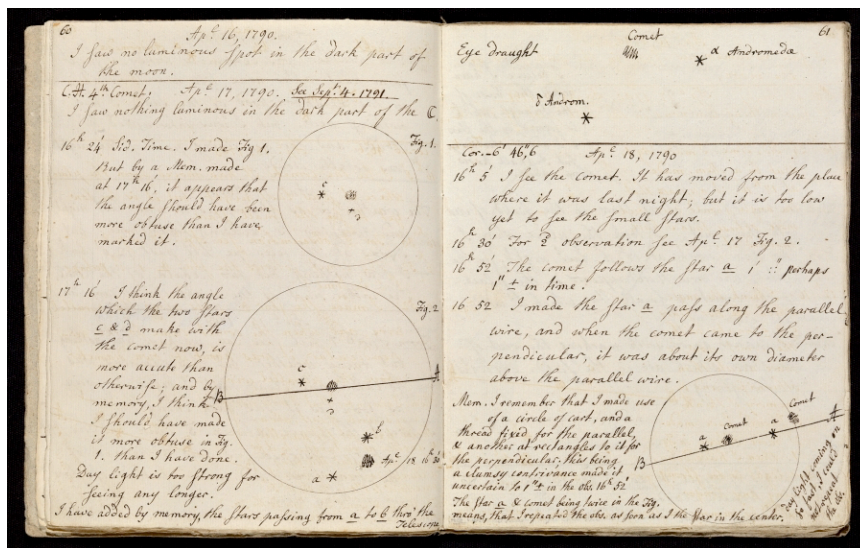 60
Apl. 16, 1790.
I saw no luminous spot in the dark part of
the moon.
C.H. 4th Comet, Apl. 17, 1790. See Sept. 4. 1791.
I saw nothing luminous in the dark part of the ☾.
Fig. 1.
16h 24' Sid. Time. I made Fig 1.
But by a Mem. made
at 17h 16, it appears that
the angle should have been
more obtuse than I have
marked it.
c
17h 16' I think the angle
which the two stars
c & d make with
the comet now, is
more accute than
otherwise; and by
memory, I think
I should have made
it more obtuse in Fig.
1. than I have done.
Day light is too strong for
seeing any longer.
I have added by memory, the stars passing from a to b thro' the
Telescope
Fig. 2
c
B
b
Apl. 18 16h 30'
a
61
Eye draught
Comet
α Andromeda
δ Androm.
Cor. -6' 46",6 Apl. 18, 1790
16h 5' I see the comet. It has moved from the place
where it was last night; but it is too low
yet to see the small stars.
16h 30' For observation see Apl. 17 Fig. 2.
16h 52' The comet follows the star a 1' :: perhaps
1" ± in time.
16 52 I made the star a pass along the parallel
wire, and when the comet came to the per-
pendicular, it was about its own diameter
above the parallel wire.
Mem. I remember that I made use
of a circle of card, and a
thread fixed for the parallel,
& another at rectangles to it for
the perpendicular. this being
a clumsy contrivance made it
uncertain to 1" ± in the obs. 16h 52'
The star a & comet being twice in the Fig.
means, that I repeated the obs. as soon as I the star in the center.
Comet
a
Comet
a
B
Day light coming on
so fast I could
not repeat
the obs.